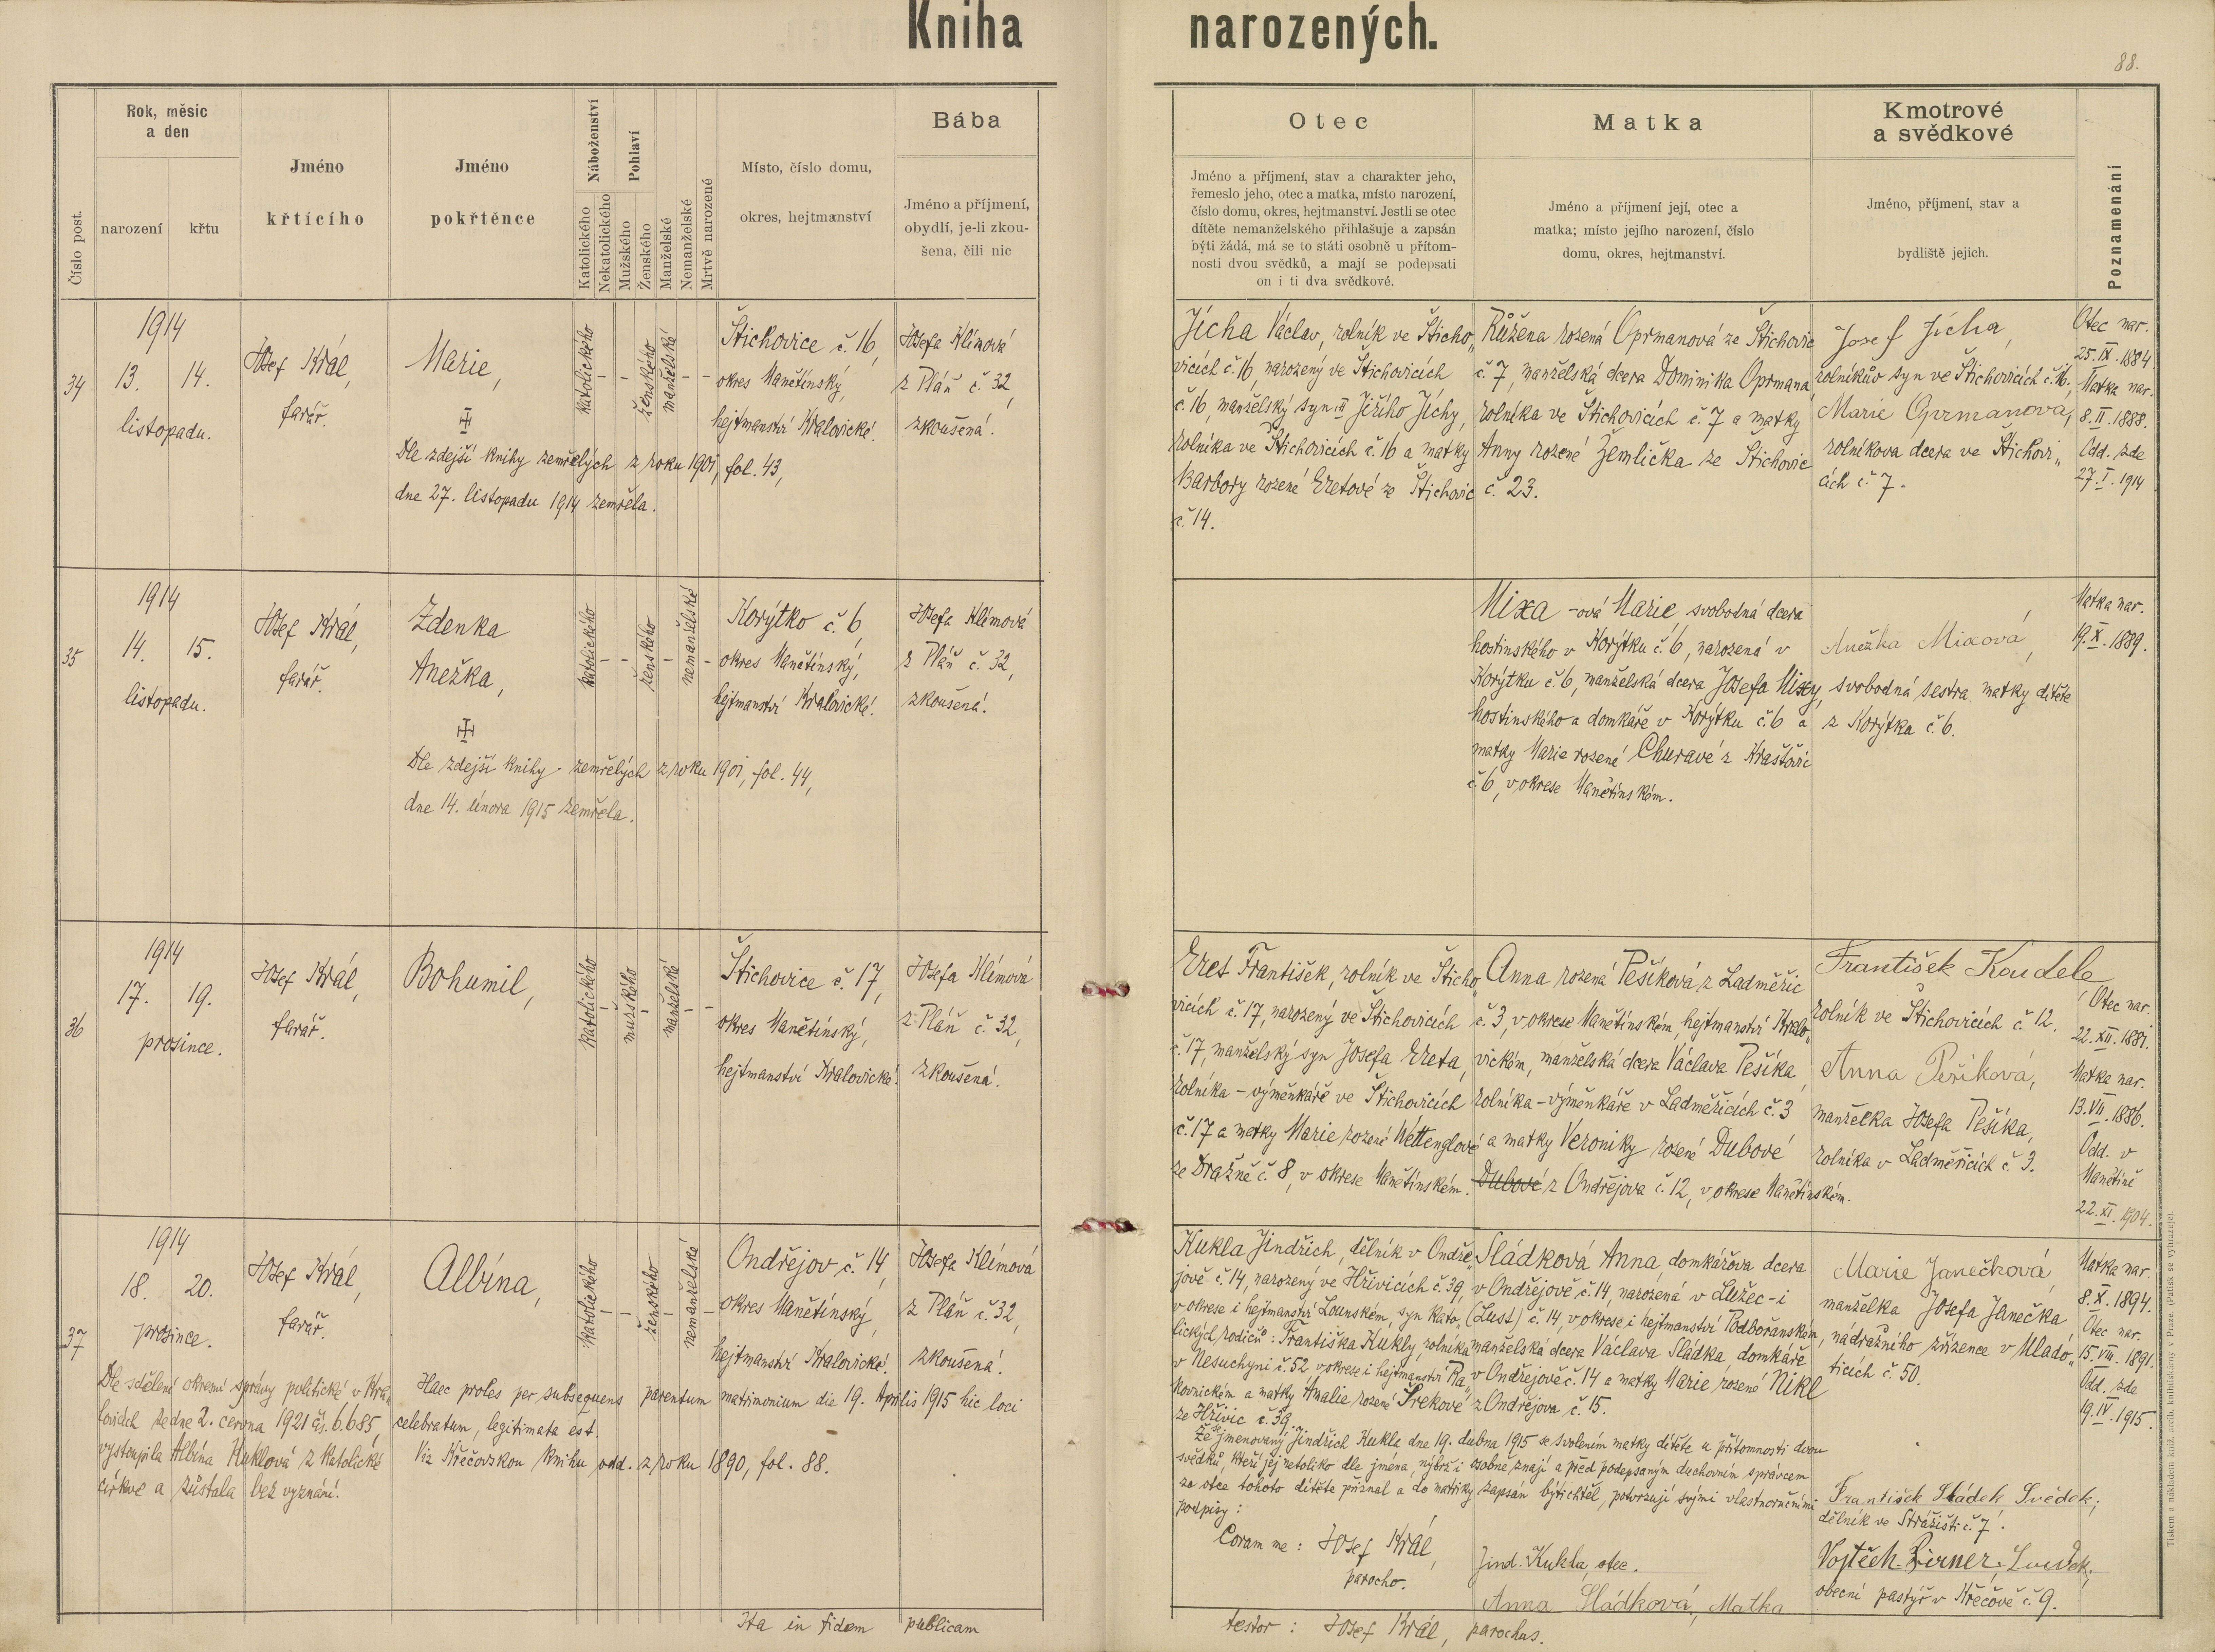 Kniha narozených.
88.
Číslo post.
Rok, měsíc
a den
narození
křtu
Jméno
křtícího
Jméno
pokřtěnce
Náboženství
Katolického
Nekatolického
Pohlaví
Mužského
Ženského
Manželské
Nemanželské
Mrtvě narozené
Místo, číslo domu,
okres, hejtmanství
Bába
Jméno a příjmení,
obydlí, je-li zkou-
šena, čili nic
Otec
Jméno a příjmení, stav a charakter jeho,
řemeslo jeho, otec a matka, místo narození,
číslo domu, okres, hejtmanství. Jestli se otec
dítěte nemanželského přihlašuje a zapsán
býti žádá, má se to státi osobně u přítom-
nosti dvou svědků, a mají se podepsati
on i ti dva svědkové.
Matka
Jméno a příjmení její, otec a
matka; místo jejího narození, číslo
domu, okres, hejtmanství.
Kmotrové
a svědkové
Jméno, příjmení, stav a
bydliště jejich.
Poznamenání
34
1914
13. 14.
listopadu.
Josef Král,
farář.
Marie,
Dle zdejší knihy zemřelých z roku 1901, fol. 43,
dne 27. listopadu 1914 zemřela.
katolického
–
–
ženského
manželské
–
–
Štichovice č. 16,
okres Manětínský,
hejtmanství Kralovické.
Josefa Klímová
z Pláň č. 32,
zkoušená.
Jícha Václav, rolník ve Šticho„
vicích č. 16, narozený ve Štichovicích
č. 16, manželský syn Jiřího Jíchy,
rolníka ve Štichovicích č. 16 a matky
Barbory rozené Eretové ze Štichovic
č. 14.
Růžena rozená Oprmanová ze Štichovic
č. 7, manželská dcera Dominika Oprmana,
rolníka ve Štichovicích č. 7 a matky
Anny rozené Žemlička ze Štichovic
č. 23.
Josef Jícha,
rolníkův syn ve Štichovicích č. 16.
Marie Oprmanová,
rolníkova dcera ve Štichovi„
cích č. 7.
Otec nar.
25. IX. 1884.
Matka nar.
8. II. 1888.
Odd. zde
27. I. 1914
35
1914
14. 15.
listopadu.
Josef Král,
farář.
Zdenka
Anežka,
Dle zdejší knihy zemřelých z roku 1901, fol. 44,
dne 14. února 1915 zemřela.
katolického
–
–
ženského
–
nemanželské
–
Korýtko č. 6,
okres Manětínský,
hejtmanství Kralovické.
Josefa Klímová
z Pláň č. 32,
zkoušená.
Mixa -ová Marie, svobodná dcera
hostinského v Korýtku č. 6, narozená v
Korýtku č. 6, manželská dcera Josefa Mixy,
hostinského a domkaře v Korýtku č. 6 a
matky Marie rozené Churavé z Kraštovic
č. 6, v okrese Manětínském.
Anežka Mixová,
svobodná sestra matky dítěte
z Korýtka č. 6.
Matka nar.
19. X. 1889.
36
1914
17. 19.
prosince.
Josef Král,
farář.
Bohumil,
katolického
–
mužského
–
manželské
–
–
Štichovice č. 17,
okres Manětínský,
hejtmanství Kralovické.
Josefa Klímová
z Pláň č. 32,
zkoušená.
Eret František, rolník ve Šticho„
vicích č. 17, narozený ve Štichovicích
č. 17, manželský syn Josefa Ereta,
rolníka – výměnkáře ve Štichovicích
č. 17 a matky Marie rozené Wettenglové
ze Dražně č. 8, v okrese Manětínském.
Anna rozená Pešíková z Ladměřic
č. 3, v okrese Manětínském, hejtmanství Kralo„
vickém, manželská dcera Václava Pešíka,
rolníka – výměnkáře v Ladměřicích č. 3
a matky Veroniky rozené Dubové
Dubové z Ondřejova č. 12, v okrese Manětínském.
František Koudele,
rolník ve Štichovicích č. 12.
Anna Pešíková,
manželka Josefa Pešíka,
rolníka v Ladměřicích č. 3.
Otec nar.
22. XII. 1881.
Matka nar.
13. VII. 1886.
Odd. v
Manětíně
22. XI. 1904.
37
1914
18. 20.
prosince.
Josef Král,
farář.
Albína,
Dle sdělení okresní správy politické v Kra„
lovicích ze dne 2. června 1921 čís. 6.685,
vystoupila Albína Kuklová z katolické
církve a zůstala bez vyznání.
Haec proles per subsequens parentum matrimonium die 19. Aprilis 1915 hic loci
celebratum, legitimata est.
Viz Křečovskou knihu odd. z roku 1890, fol. 88.
katolického
–
–
ženského
–
nemanželské
–
Ondřejov č. 14,
okres Manětínský,
hejtmanství Kralovické.
Josefa Klímová
z Pláň č. 32,
zkoušená.
Kukla Jindřich, dělník v Ondře„
jově č. 14, narozený ve Hřivicích č. 39,
v okrese i hejtmanství Lounském, syn kato„
lických rodičů: Františka Kukly, rolníka
v Nesuchyni č. 52 v okrese i hejtmanství Ra„
kovnickém a matky Amalie rozené Srekové
ze Hřivic č. 39.
Sládková Anna, domkářova dcera
v Ondřejově č. 14, narozená v Lužec-i
(Lust) č. 14, v okrese i hejtmanství Podbořanském,
manželská dcera Václava Sládka, domkáře
v Ondřejově č. 14 a matky Marie rozené Nikl
z Ondřejova č. 15.
Marie Janečková,
manželka Josefa Janečka
nádražního zřízence v Mlado„
ticích č. 50.
Matka nar.
8. X. 1894.
Otec nar.
15. VIII. 1891.
Odd. zde
19. IV. 1915.
Že jmenovaný Jindřich Kukla dne 19. dubna 1915 se svolením matky dítěte u přítomnosti dvou
svědků, kteří jej netoliko dle jména, nýbrž i osobně znají a před podepsaným duchovním správcem
za otce tohoto dítěte přiznal a do matriky zapsán býti chtěl, potvrzují svými vlastnoručními
podpisy:
Coram me: Josef Král,
parocho.
Jind. Kukla, otec.
Anna Sládková, Matka
František Sládek, Svědek,
dělník ve Strážišti č. 7.
Vojtěch Birner, Svědek,
obecní pastýř v Křečově č. 9.
Ita in fidem publicam
testor: Josef Král, parochus.